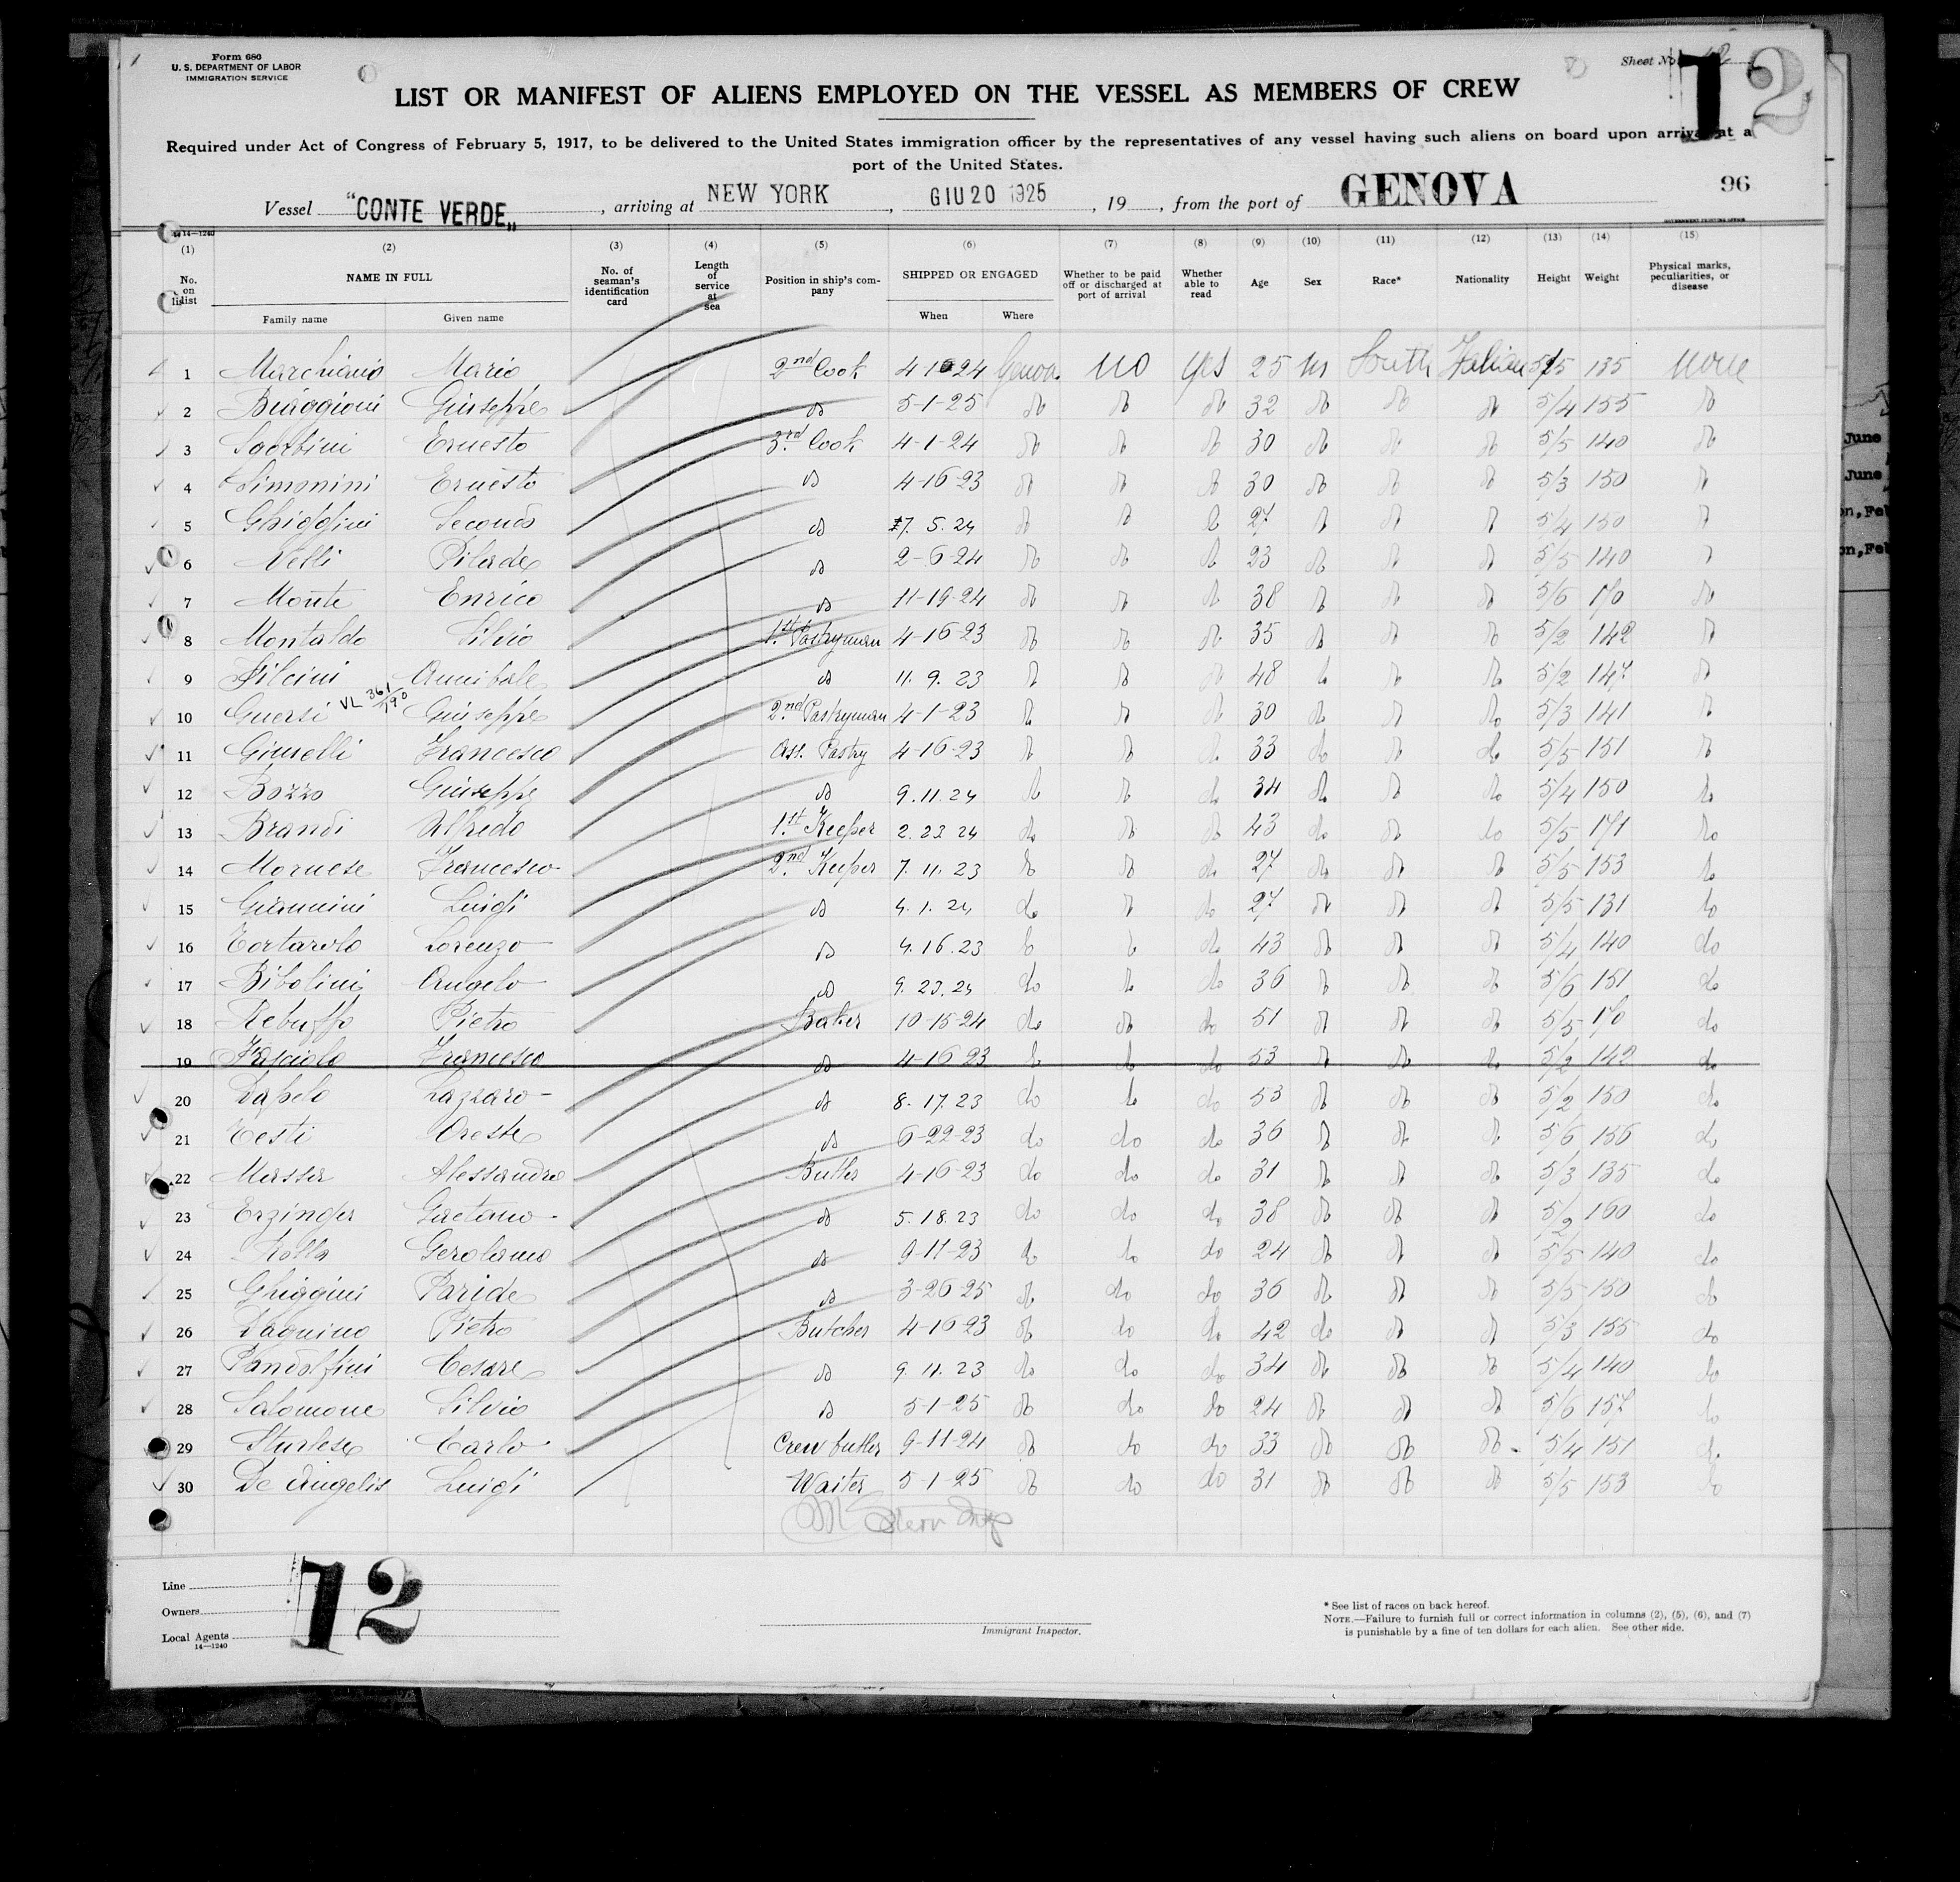 Form 680
U. S. DEPARTMENT OF LABOR
IMMIGRATION SERVICE
Sheet No. 12
12
LIST OR MANIFEST OF ALIENS EMPLOYED ON THE VESSEL AS MEMBERS OF CREW
Required under Act of Congress of February 5, 1917, to be delivered to the United States immigration officer by the representatives of any vessel having such aliens on board upon arrival at a
port of the United States.
Vessel "CONTE VERDE„ , arriving at NEW YORK , GIU 20 1925 , 19 , from the port of GENOVA 96
14—1240
(1) (2) (3) (4) (5) (6) (7) (8) (9) (10) (11) (12) (13) (14) (15)
No. on list NAME IN FULL Family name Given name No. of seaman's identification card Length of service at sea Position in ship's company SHIPPED OR ENGAGED When Where Whether to be paid off or discharged at port of arrival Whether able to read Age Sex Race* Nationality Height Weight Physical marks, peculiarities, or disease
1 Marchiano Mario 2nd Cook 4-16-24 Genova no yes 25 m South Italian 5/5 135 none
2 Biaggioni Giuseppe do 5-1-25 do do do 32 do do do 5/4 155 do
3 Ernesto 3rd Cook 4-1-24 do do do 30 do do do 5/5 140 do
4 Simonini Ernesto do 4-16-23 do do do 30 do do do 5/3 150 do
5 Ghiggini Secondo do 7. 5. 24 do do do 27 do do do 5/4 150 do
6 Nelli Pilade do 2-6-24 do do do 23 do do do 5/5 140 do
7 Monte Enrico do 11-19-24 do do do 38 do do do 5/6 170 do
8 Montaldo Silvio 1st Pastryman 4-16-23 do do do 35 do do do 5/2 142 do
9 Annibale do 11. 9. 23 do do do 48 do do do 5/2 147 do
VL 361/190
10 Guersi Giuseppe 2nd Pastryman 4-1-23 do do do 30 do do do 5/3 141 do
11 Gimelli Francesco Ass. Pastry 4-16-23 do do do 33 do do do 5/5 151 do
12 Bozzo Giuseppe do 9. 11. 24 do do do 34 do do do 5/4 150 do
13 Brandi Alfredo 1st Keeper 2. 23 24 do do do 43 do do do 5/5 171 do
14 Mornese Francesco 2nd Keeper 7. 11. 23 do do do 27 do do do 5/5 153 do
15 Giannini Luigi do 4. 1. 24 do do do 27 do do do 5/5 131 do
16 Tortarolo Lorenzo do 4. 16. 23 do do do 43 do do do 5/4 140 do
17 Bibolini Angelo do 9. 23. 24 do do do 36 do do do 5/6 151 do
18 Rebuffo Pietro Baker 10-15-24 do do do 51 do do do 5/5 170 do
19 Fasciolo Francesco do 4-16-23 do do do 53 do do do 5/2 142 do
20 Lazzaro do 8. 17. 23 do do do 53 do do do 5/2 150 do
21 Testi Oreste do 6-22-23 do do do 36 do do do 5/6 156 do
22 Massa Alessandro Butler 4-16-23 do do do 31 do do do 5/3 135 do
23 Erzinger Gaetano do 5. 18. 23 do do do 38 do do do 5/2 160 do
24 Rolla Gerolamo do 9-11-23 do do do 24 do do do 5/5 140 do
25 Ghiggini Paride do 3-26-25 do do do 36 do do do 5/5 150 do
26 Dagnino Pietro Butcher 4-16-23 do do do 42 do do do 5/3 155 do
27 Pandolfini Cesare do 9. 11. 23 do do do 34 do do do 5/4 140 do
28 Salomone Silvio do 5-1-25 do do do 24 do do do 5/6 157 do
29 Sturlese Carlo Crew butler 9-11-24 do do do 33 do do do 5/4 151 do
30 De Angelis Luigi Waiter 5-1-25 do do do 31 do do do 5/5 153 do
Line
Owners
Local Agents
14—1240
12
Immigrant Inspector.
* See list of races on back hereof.
NOTE.—Failure to furnish full or correct information in columns (2), (5), (6), and (7)
is punishable by a fine of ten dollars for each alien. See other side.
June
June